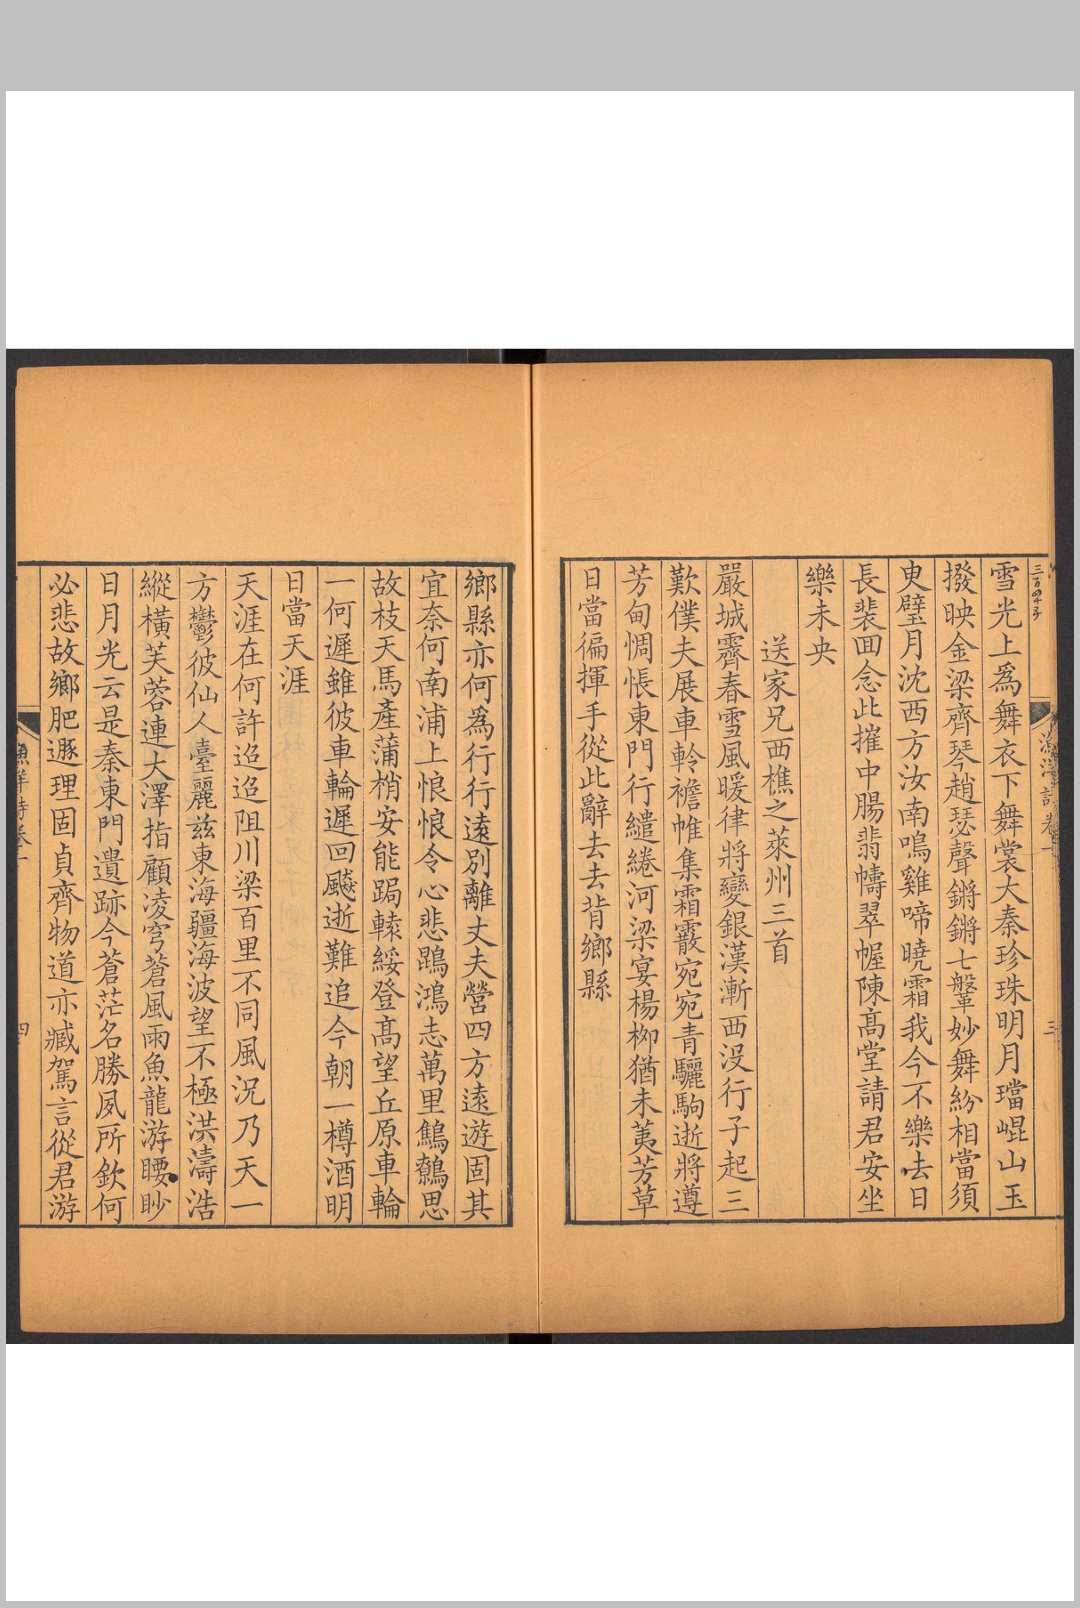 雪光上爲舞衣下舞裳大秦珍珠明月璫崐山玉
撥映金梁齊琴趙瑟聲鏘鏘七鞶妙舞紛相當須
臾璧月沈西方汝南鳴雞啼曉霜我今不樂去日
長裴回念此摧中腸翡幬翠幄陳高堂請君安坐
樂未央
送家兄西樵之萊州三首
嚴城霽春雪風暖律將變銀漢漸西沒行子起三
歎僕夫展車軨襜帷集霜霰宛宛青驪駒逝將遵
芳甸惆悵東門行繾綣河梁宴楊柳猶未荑芳草
日當徧揮手從此辭去去背鄉縣
鄉縣亦何爲行行遠別離丈夫營四方遠遊固其
宜奈何南浦上悢悢令心悲鵾鴻志萬里鷦鷯思
故枝天馬產蒲梢安能跼轅綏登高望丘原車輪
一何遲雖彼車輪遲回飇逝難追今朝一樽酒明
日當天涯
天涯在何許迢迢阻川梁百里不同風況乃天一
方鬱彼仙人臺麗兹東海疆海波望不極洪濤浩
縱橫芙蓉連大澤指顧凌穹蒼風雨魚龍游瞹眇
日月光云是秦東門遺跡今蒼茫名勝夙所欽何
必悲故鄉肥遯理固貞齊物道亦臧駕言從君游
漁洋詩卷一
四